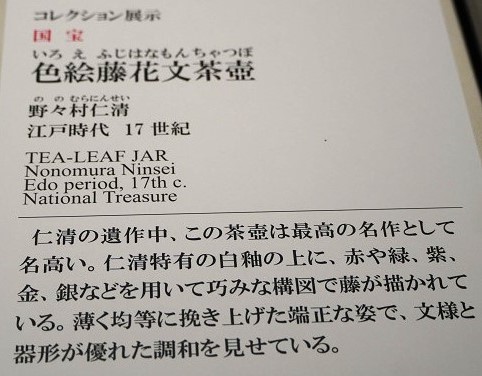 コレクション展示
国 宝
いろ え ふじはなもんちゃつぼ
色絵藤花文茶壺
の の むらにんせい
野々村仁清
江戸時代 17世紀
TEA-LEAF JAR
Nonomura Ninsei
Edo period, 17th c.
National Treasure
仁清の遺作中、この茶壺は最高の名作として
名高い。仁清特有の白釉の上に、赤や緑、紫、
金、銀などを用いて巧みな構図で藤が描かれて
いる。薄く均等に挽き上げた端正な姿で、文様と
器形が優れた調和を見せている。